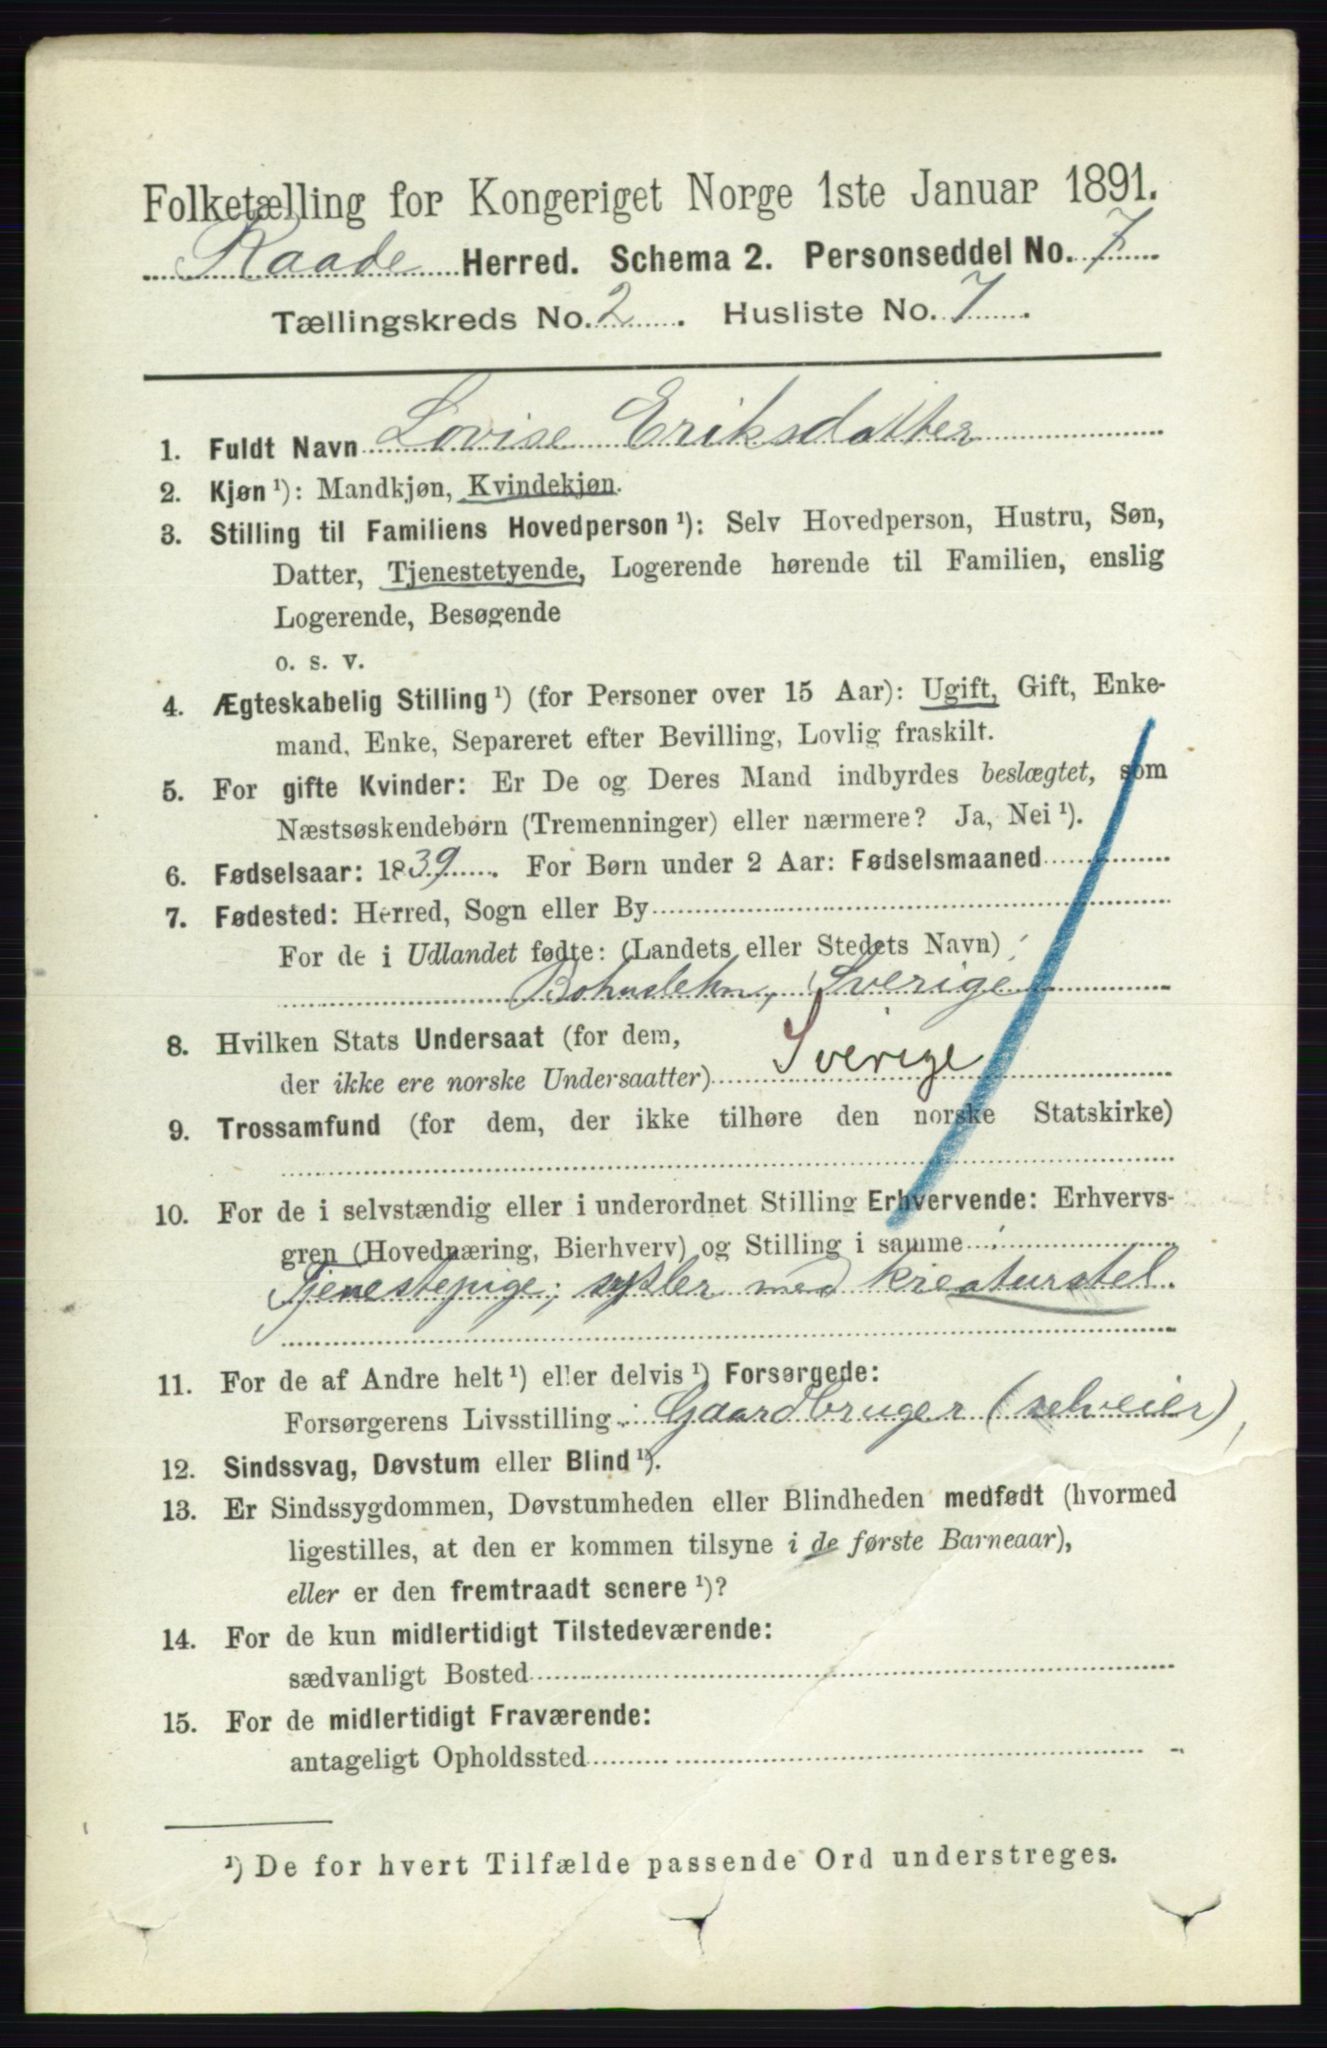 Folketælling for Kongeriget Norge 1ste Januar 1891.
Raade Herred. Schema 2. Personseddel No. 7
Tællingskreds No. 2. Husliste No. 7.
1. Fuldt Navn Lovise Eriksdatter
2. Kjøn ¹): Mandkjøn, Kvindekjøn.
3. Stilling til Familiens Hovedperson ¹): Selv Hovedperson, Hustru, Søn,
Datter, Tjenestetyende, Logerende hørende til Familien, enslig
Logerende, Besøgende
o. s. v.
4. Ægteskabelig Stilling ¹) (for Personer over 15 Aar): Ugift, Gift, Enke-
mand, Enke, Separeret efter Bevilling, Lovlig fraskilt.
5. For gifte Kvinder: Er De og Deres Mand indbyrdes beslægtet, som
Næstsøskendebørn (Tremenninger) eller nærmere? Ja, Nei ¹).
6. Fødselsaar: 1839. For Børn under 2 Aar: Fødselsmaaned
7. Fødested: Herred, Sogn eller By
For de i Udlandet fødte: (Landets eller Stedets Navn)
Bohuslehn, Sverige
8. Hvilken Stats Undersaat (for dem,
der ikke ere norske Undersaatter) Sverige
9. Trossamfund (for dem, der ikke tilhøre den norske Statskirke)
10. For de i selvstændig eller i underordnet Stilling Erhvervende: Erhvervs-
gren (Hovednæring, Bierhverv) og Stilling i samme
Tjenestepige; sysler med kreaturstel
11. For de af Andre helt ¹) eller delvis ¹) Forsørgede:
Forsørgerens Livsstilling: Gaardbruger (selveier)
12. Sindssvag, Døvstum eller Blind ¹).
13. Er Sindssygdommen, Døvstumheden eller Blindheden medfødt (hvormed
ligestilles, at den er kommen tilsyne i de første Barneaar),
eller er den fremtraadt senere ¹)?
14. For de kun midlertidigt Tilstedeværende:
sædvanligt Bosted
15. For de midlertidigt Fraværende:
antageligt Opholdssted
¹) De for hvert Tilfælde passende Ord understreges.